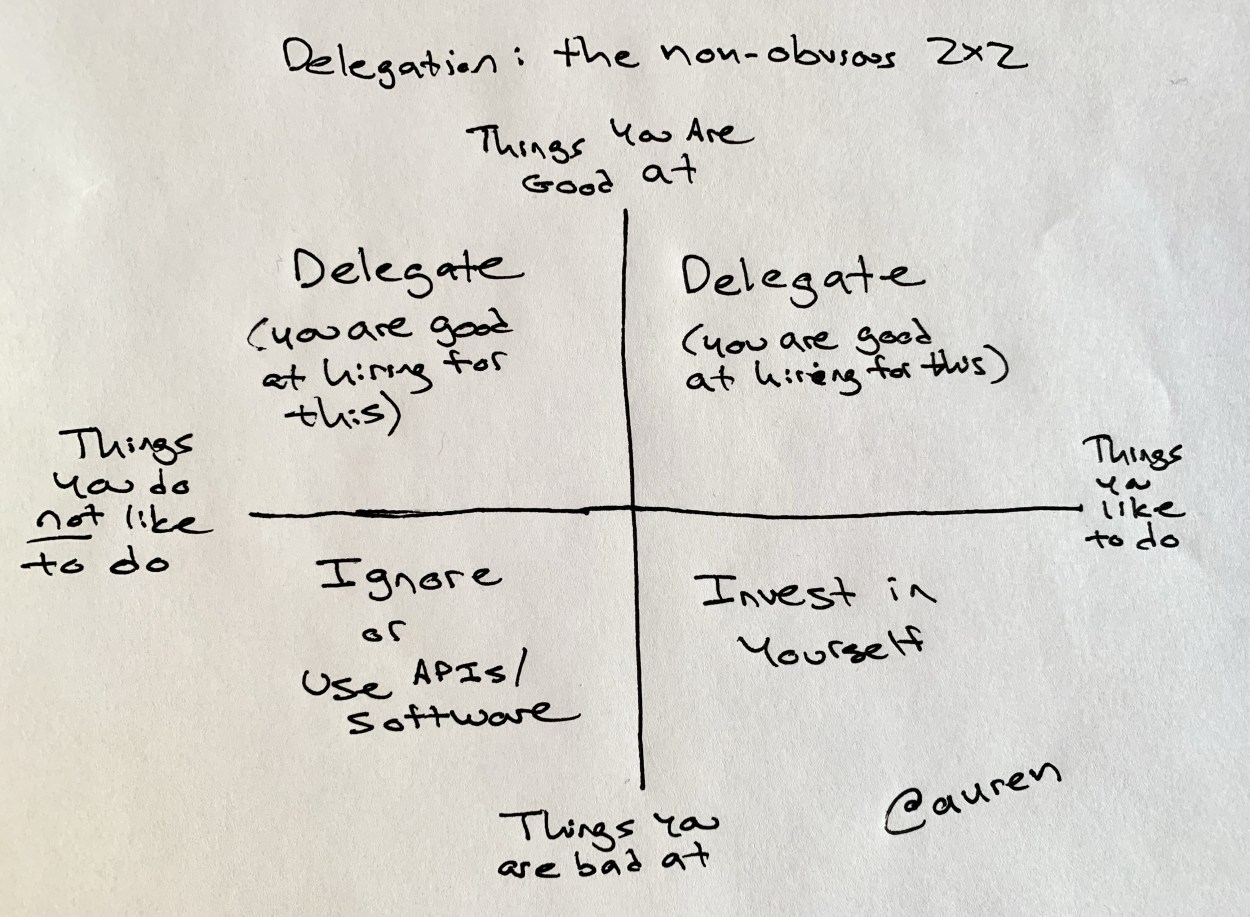 Delegation: the non-obvious 2x2
Things You Are
Good at
Delegate
(you are good
at hiring for
this)
Delegate
(you are good
at hiring for this)
Things
you do
not like
to do
Things
you
like
to do
Ignore
or
Use APIs/
software
Invest in
Yourself
@auren
Things you
are bad at